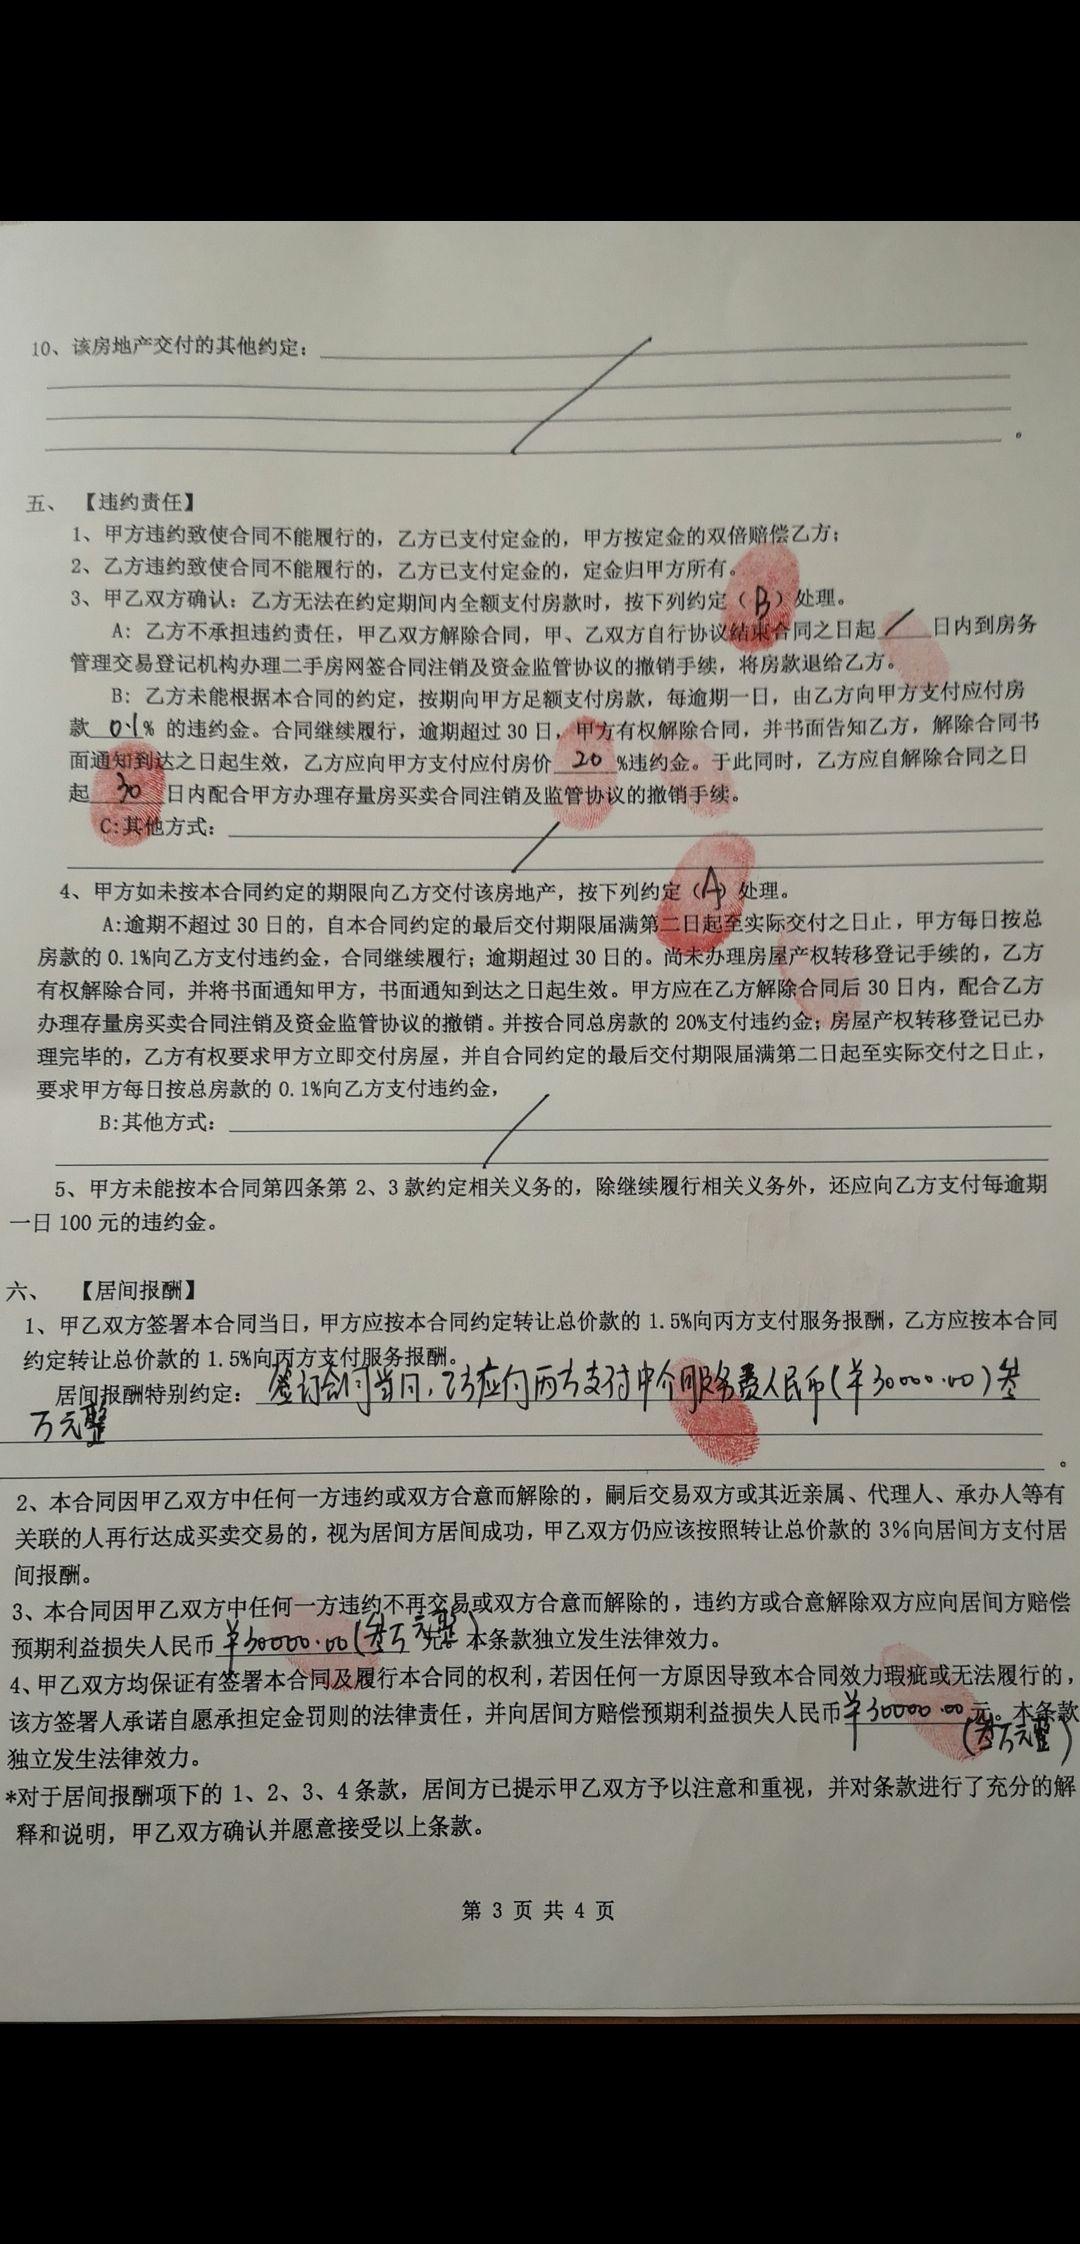 10、该房地产交付的其他约定：
。
五、【违约责任】
1、甲方违约致使合同不能履行的，乙方已支付定金的，甲方按定金的双倍赔偿乙方；
2、乙方违约致使合同不能履行的，乙方已支付定金的，定金归甲方所有。
3、甲乙双方确认：乙方无法在约定期间内全额支付房款时，按下列约定（B）处理。
A：乙方不承担违约责任，甲乙双方解除合同，甲、乙双方自行协议结束合同之日起 / 日内到房务
管理交易登记机构办理二手房网签合同注销及资金监管协议的撤销手续，将房款退给乙方。
B：乙方未能根据本合同的约定，按期向甲方足额支付房款，每逾期一日，由乙方向甲方支付应付房
款 0.1% 的违约金。合同继续履行，逾期超过 30 日，甲方有权解除合同，并书面告知乙方，解除合同书
面通知到达之日起生效，乙方应向甲方支付应付房价 20 %违约金。于此同时，乙方应自解除合同之日
起 30 日内配合甲方办理存量房买卖合同注销及监管协议的撤销手续。
C:其他方式： /
4、甲方如未按本合同约定的期限向乙方交付该房地产，按下列约定（A）处理。
A:逾期不超过 30 日的，自本合同约定的最后交付期限届满第二日起至实际交付之日止，甲方每日按总
房款的 0.1%向乙方支付违约金，合同继续履行；逾期超过 30 日的。尚未办理房屋产权转移登记手续的，乙方
有权解除合同，并将书面通知甲方，书面通知到达之日起生效。甲方应在乙方解除合同后 30 日内，配合乙方
办理存量房买卖合同注销及资金监管协议的撤销。并按合同总房款的 20%支付违约金；房屋产权转移登记已办
理完毕的，乙方有权要求甲方立即交付房屋，并自合同约定的最后交付期限届满第二日起至实际交付之日止，
要求甲方每日按总房款的 0.1%向乙方支付违约金，
B:其他方式： /
5、甲方未能按本合同第四条第 2、3 款约定相关义务的，除继续履行相关义务外，还应向乙方支付每逾期
一日 100 元的违约金。
六、【居间报酬】
1、甲乙双方签署本合同当日，甲方应按本合同约定转让总价款的 1.5%向丙方支付服务报酬，乙方应按本合同
约定转让总价款的 1.5%向丙方支付服务报酬。
居间报酬特别约定：签订合同当日，乙方应付丙方支付中介服务费人民币（￥30000.00）叁
万元整
。
2、本合同因甲乙双方中任何一方违约或双方合意而解除的，嗣后交易双方或其近亲属、代理人、承办人等有
关联的人再行达成买卖交易的，视为居间方居间成功，甲乙双方仍应该按照转让总价款的 3%向居间方支付居
间报酬。
3、本合同因甲乙双方中任何一方违约不再交易或双方合意而解除的，违约方或合意解除双方应向居间方赔偿
预期利益损失人民币￥30000.00（叁万元整）元。本条款独立发生法律效力。
4、甲乙双方均保证有签署本合同及履行本合同的权利，若因任何一方原因导致本合同效力瑕疵或无法履行的，
该方签署人承诺自愿承担定金罚则的法律责任，并向居间方赔偿预期利益损失人民币￥30000.00元。本条款
（叁万元整）
独立发生法律效力。
*对于居间报酬项下的 1、2、3、4 条款，居间方已提示甲乙双方予以注意和重视，并对条款进行了充分的解
释和说明，甲乙双方确认并愿意接受以上条款。
第 3 页 共 4 页